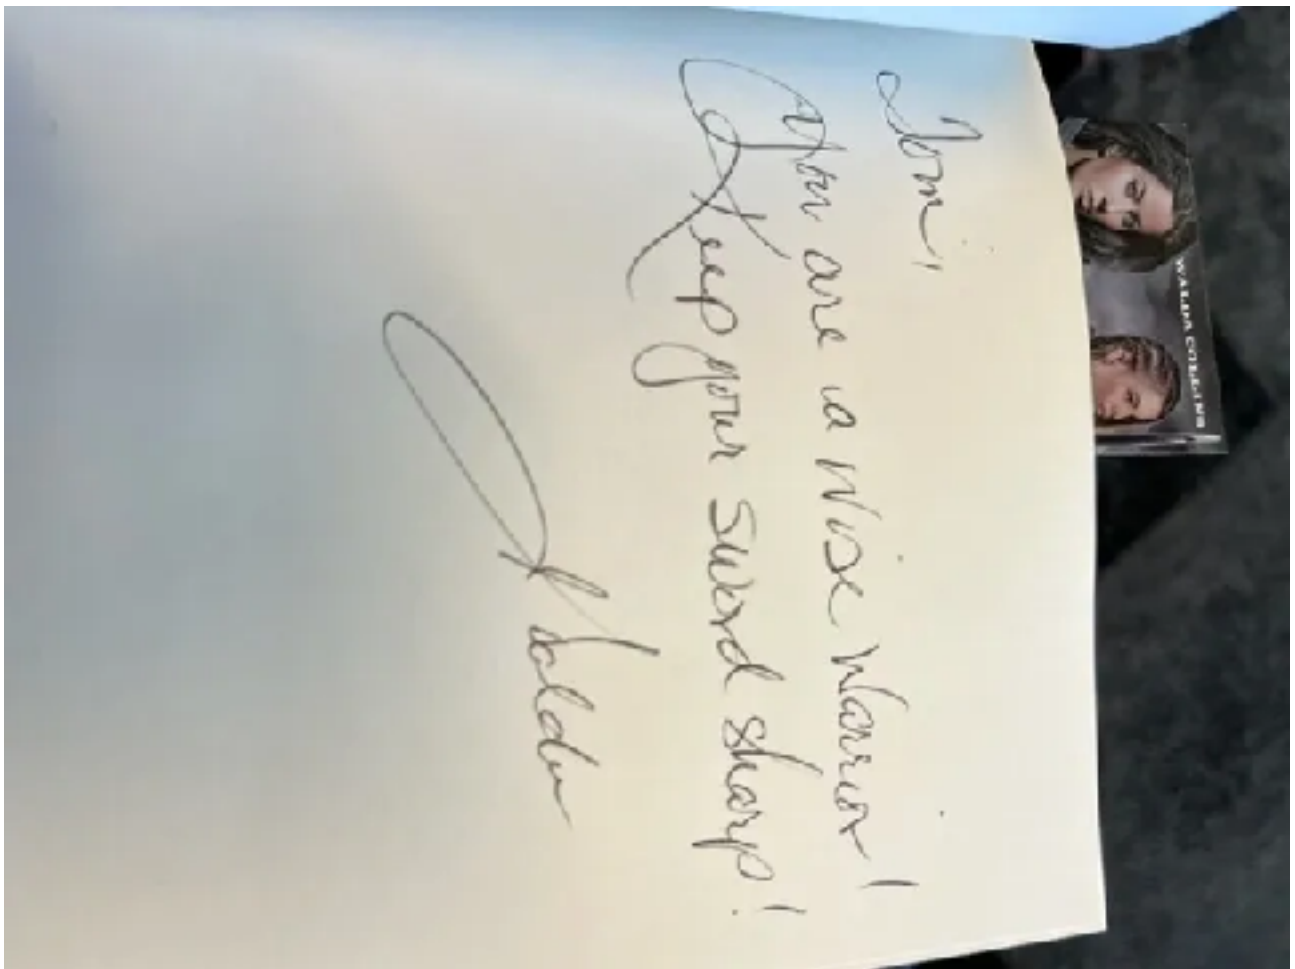 Tom,
You are a Wise Warrior!
Keep your sword sharp!
Walda
WALDA COLLINS